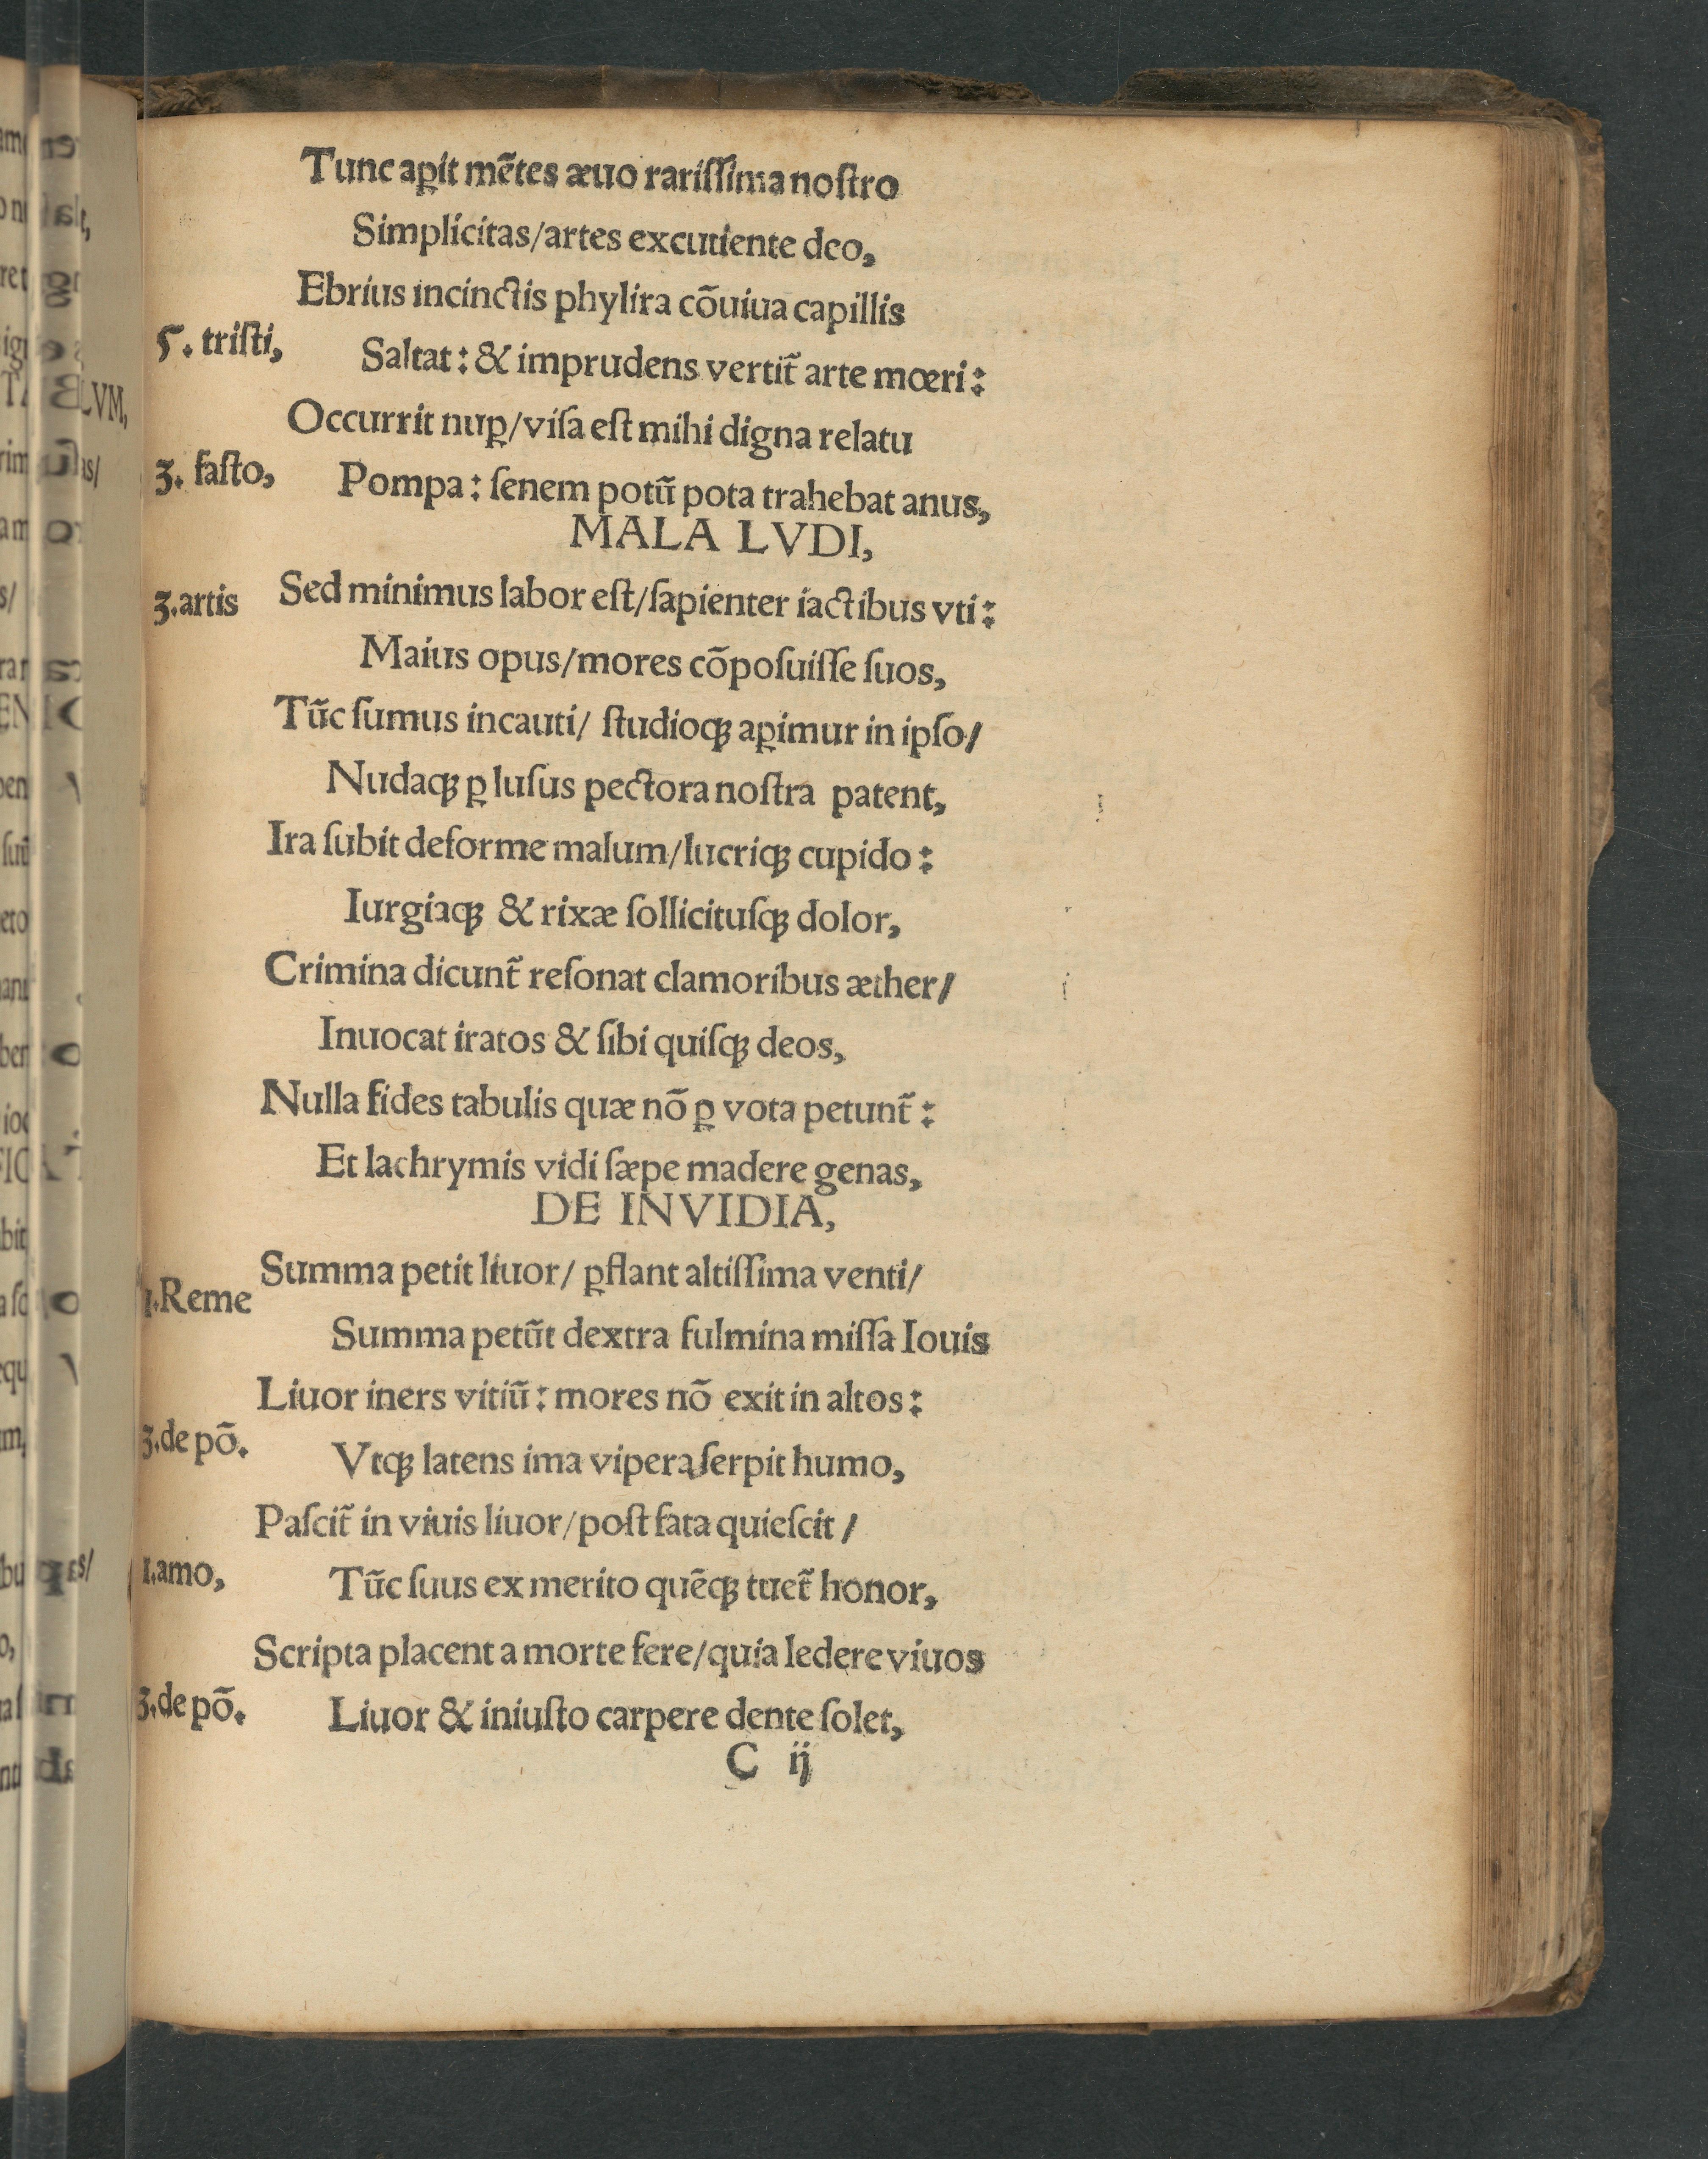 Tunc aꝑit mẽtes æuo rariſſima noſtro
Simplicitas/artes excutiente deo,
Ebrius incinctis phylira cõuiua capillis
5. triſti,
Saltat: & imprudens vertit̃ arte mœri:
Occurrit nuꝑ/viſa eſt mihi digna relatu
3. faſto,
Pompa: ſenem potũ pota trahebat anus,
MALA LVDI,
3.artis
Sed minimus labor eſt/ſapienter iactibus vti:
Maius opus/mores cõpoſuiſſe ſuos,
Tũc ſumus incauti/ ſtudioqꝫ aꝑimur in ipſo/
Nudaqꝫ ꝑ luſus pectora noſtra patent,
Ira ſubit deforme malum/lucriqꝫ cupido:
Iurgiaqꝫ & rixæ ſollicituſqꝫ dolor,
Crimina dicunt̃ reſonat clamoribus æther/
Inuocat iratos & ſibi quiſqꝫ deos,
Nulla fides tabulis quæ nõ ꝑ vota petunt̃:
Et lachrymis vidi ſæpe madere genas,
DE INVIDIA,
Summa petit liuor/ ꝑflant altiſſima venti/
1.Reme
Summa petũt dextra fulmina miſſa Iouis
Liuor iners vitiũ: mores nõ exit in altos:
3.de põ.
Vtqꝫ latens ima vipera ſerpit humo,
Paſcit̃ in viuis liuor/poſt fata quieſcit/
1.amo,
Tũc ſuus ex merito quẽqꝫ tuet̃ honor,
Scripta placent a morte fere/quia ledere viuos
3.de põ.
Liuor & iniuſto carpere dente ſolet,
C ij